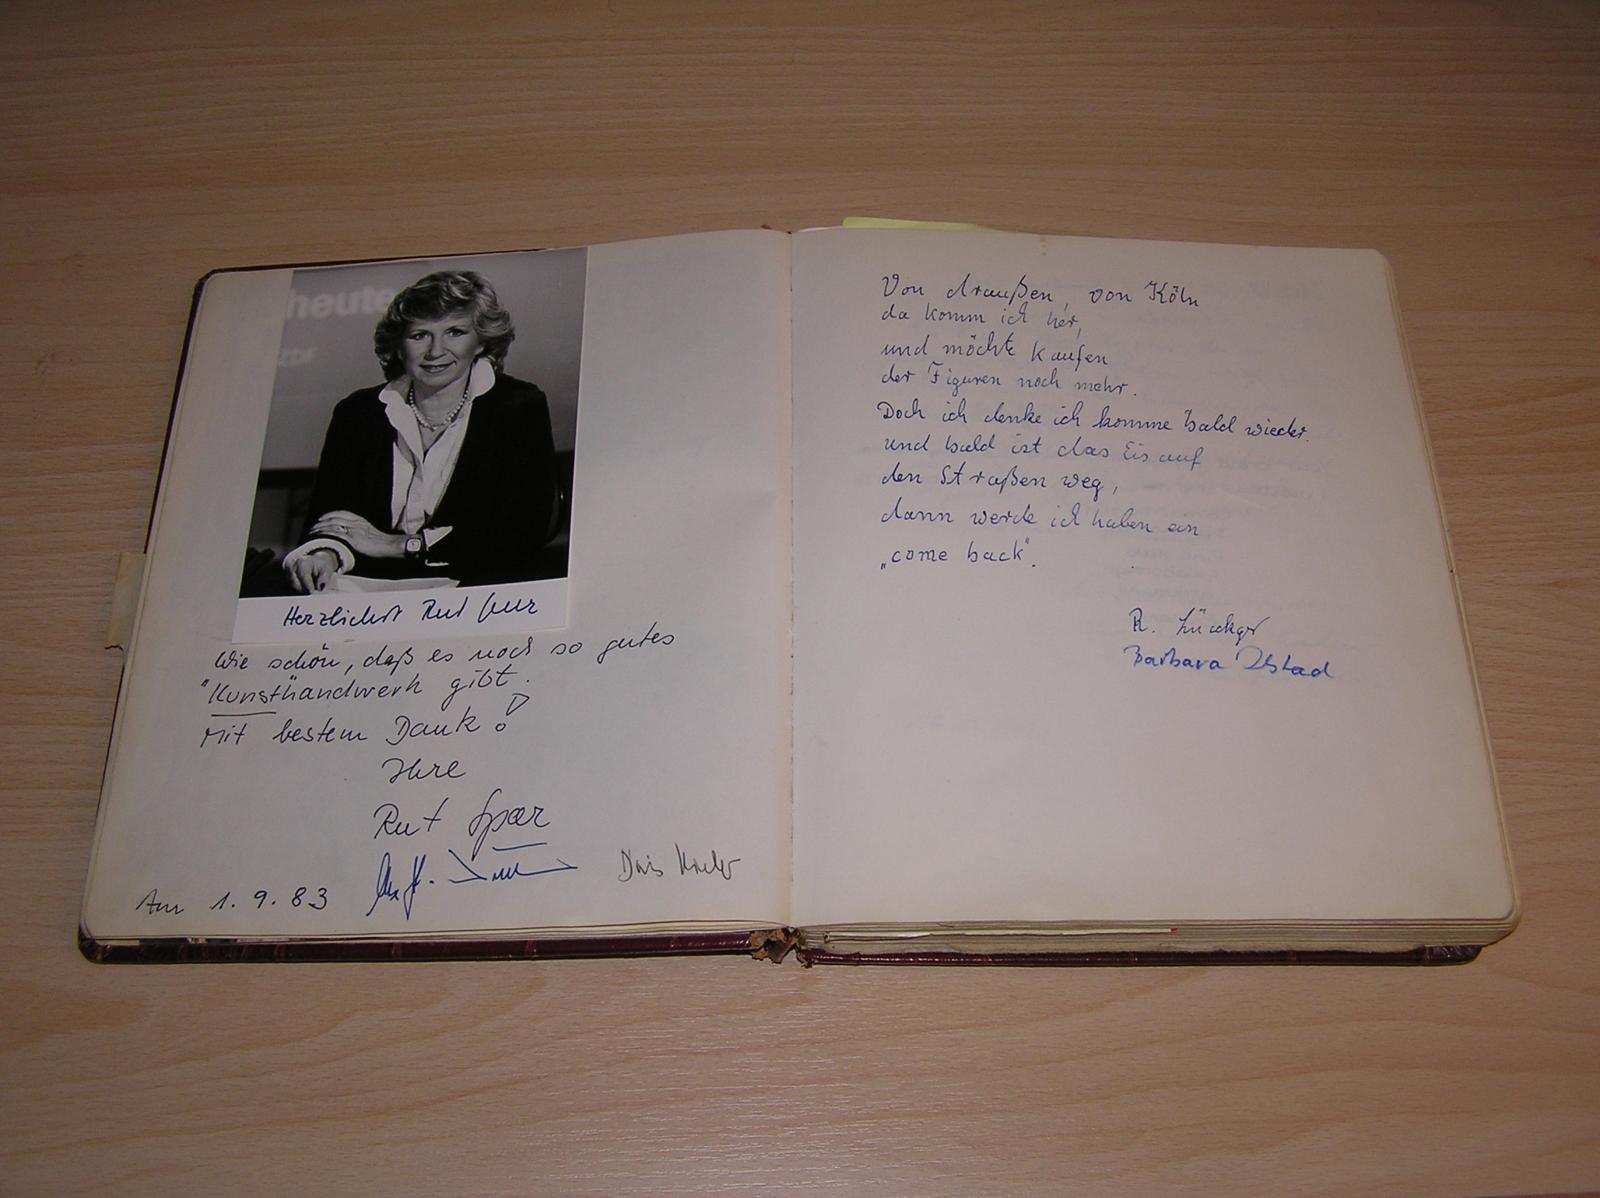 heute
ZDF
Herzlichst Rut
Wie schön, daß es noch so gutes
"Kunst"handwerk gibt.
Mit bestem Dank!
Ihre
Rut Speer
Am 1.9.83
Doris
Von draußen, von Köln
da komm ich her,
und möchte kaufen
der Figuren noch mehr.
Doch ich denke ich komme bald wieder.
und bald ist das Eis auf
den Straßen weg,
dann werde ich haben ein
„come back".
R.
Barbara